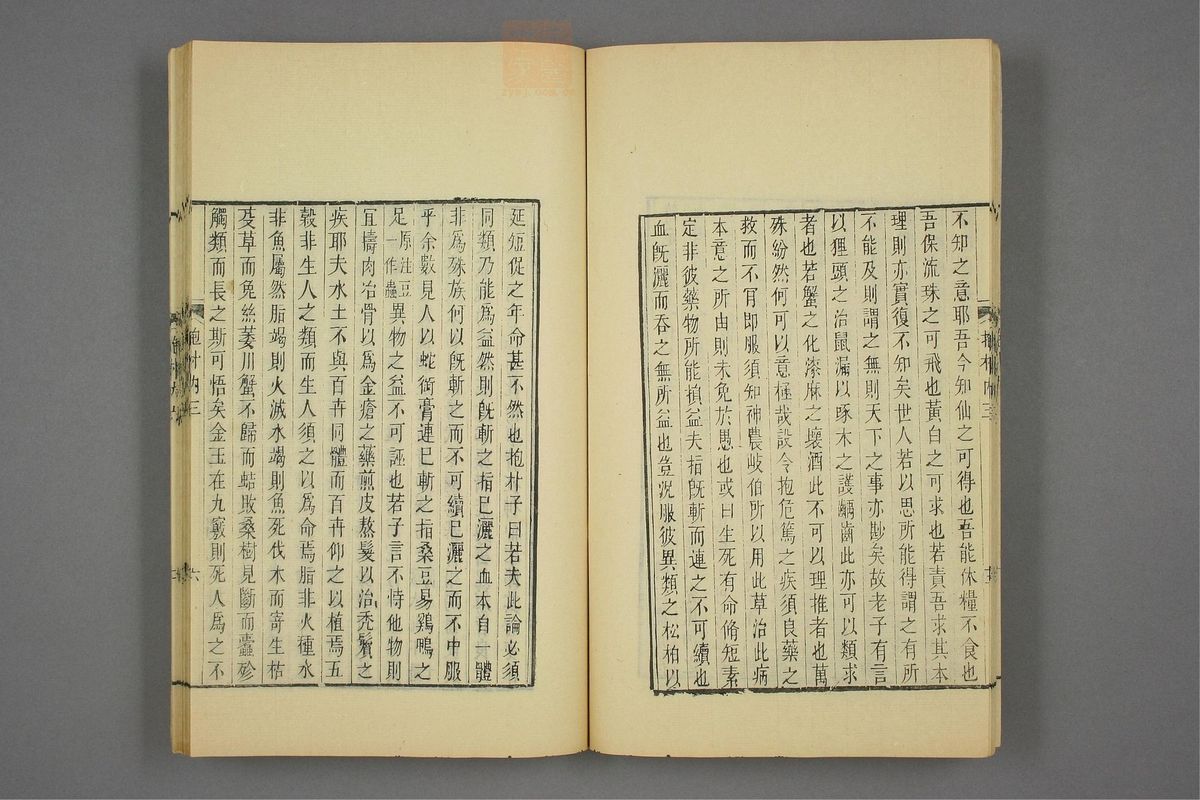 不知之意耶吾今知仙之可得也吾能休糧不食也
吾保流珠之可飛也黃白之可求也若責吾求其本
理則亦實復不知矣世人若以思所能得謂之有所
不能及則謂之無則天下之事亦尠矣故老子有言
以狸頭之治鼠漏以啄木之護齲齒此亦可以類求
者也若蟹之化漆麻之壞酒此不可以理推者也萬
殊紛然何可以意極哉設令抱危篤之疾須良藥之
救而不肎即服須知神農岐伯所以用此草治此病
本意之所由則未免於愚也或曰生死有命脩短素
定非彼藥物所能損益夫指旣斬而連之不可續也
血旣灑而吞之無所益也豈況服彼異類之松柏以
延短促之年命甚不然也抱朴子曰若夫此論必須
同類乃能爲益然則旣斬之指已灑之血本自一體
非爲殊族何以旣斬之而不可續已灑之而不中服
乎余數見人以蛇銜膏連已斬之指桑豆易雞鴨之
足原注豆一作蟲異物之益不可誣也若子言不恃他物則
宜擣肉冶骨以爲金瘡之藥煎皮熬髮以治禿鬢之
疾耶夫水土不與百卉同體而百卉仰之以植焉五
穀非生人之類而生人須之以爲命焉脂非火種水
非魚屬然脂竭則火滅水竭則魚死伐木而寄生枯
芟草而兔絲萎川蟹不歸而蛣敗桑樹見斷而蠹殄
觸類而長之斯可悟矣金玉在九竅則死人爲之不
抱朴內三
六